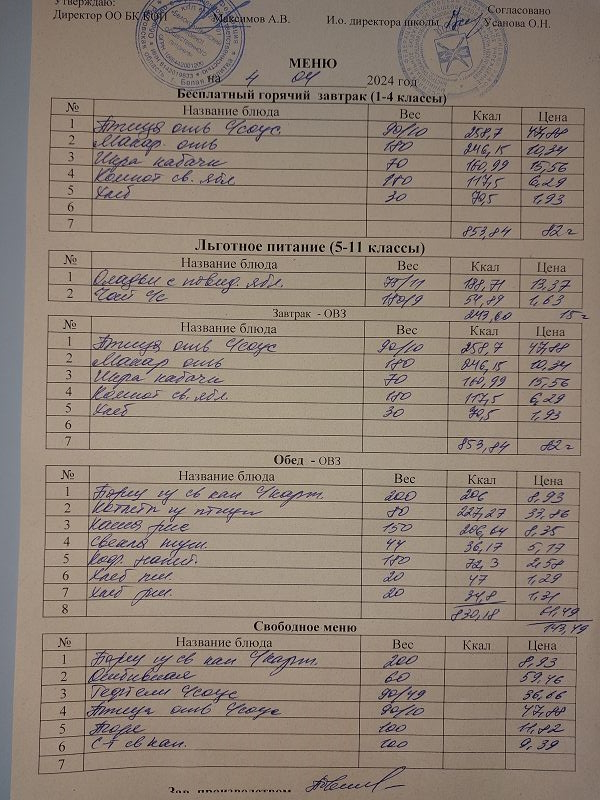 Утверждаю: Согласовано
Директор ОО БК КОЙ Максимов А.В. И.о. директора школы Усанова О.Н.
МЕНЮ
на 4 04 2024 год
Бесплатный горячий завтрак (1-4 классы)
№ Название блюда Вес Ккал Цена
1 Птица отв ч/соус 90/10 258,7 47,88
2 Макар. отв 180 246,15 10,34
3 Икра кабачк 70 160,99 15,56
4 Компот св. ябл 180 117,5 6,29
5 Хлеб 30 70,5 1,93
6
7 853,84 82 г
Льготное питание (5-11 классы)
№ Название блюда Вес Ккал Цена
1 Оладьи с повид. ябл. 75/11 188,71 13,37
2 Чай ч/с 180/9 54,89 1,63
243,60 15 г
Завтрак - ОВЗ
№ Название блюда Вес Ккал Цена
1 Птица отв ч/соус 90/10 258,7 47,88
2 Макар отв 180 246,15 10,34
3 Икра кабачк 70 160,99 15,56
4 Компот св. ябл. 180 117,5 6,29
5 Хлеб 30 70,5 1,93
6
7 853,84 82 г
Обед - ОВЗ
№ Название блюда Вес Ккал Цена
1 Борщ из св кап ч/карт. 200 206 8,93
2 Котлета из птицы 80 227,27 33,86
3 Каша рис 150 206,64 8,35
4 Свекла туш. 44 36,17 5,17
5 Коф. напит. 180 72,3 2,58
6 Хлеб пш. 20 47 1,29
7 Хлеб рж. 20 34,8 1,31
8 830,18 61,49
143,49
Свободное меню
№ Название блюда Вес Ккал Цена
1 Борщ из св кап ч/карт. 200 8,93
2 Отбивная 60 59,46
3 Тефтели ч/соус 90/49 36,66
4 Птица отв ч/соус 90/10 47,88
5 Пюре 100 11,82
6 С-т св кап. 100 9,39
7
Зав. производством